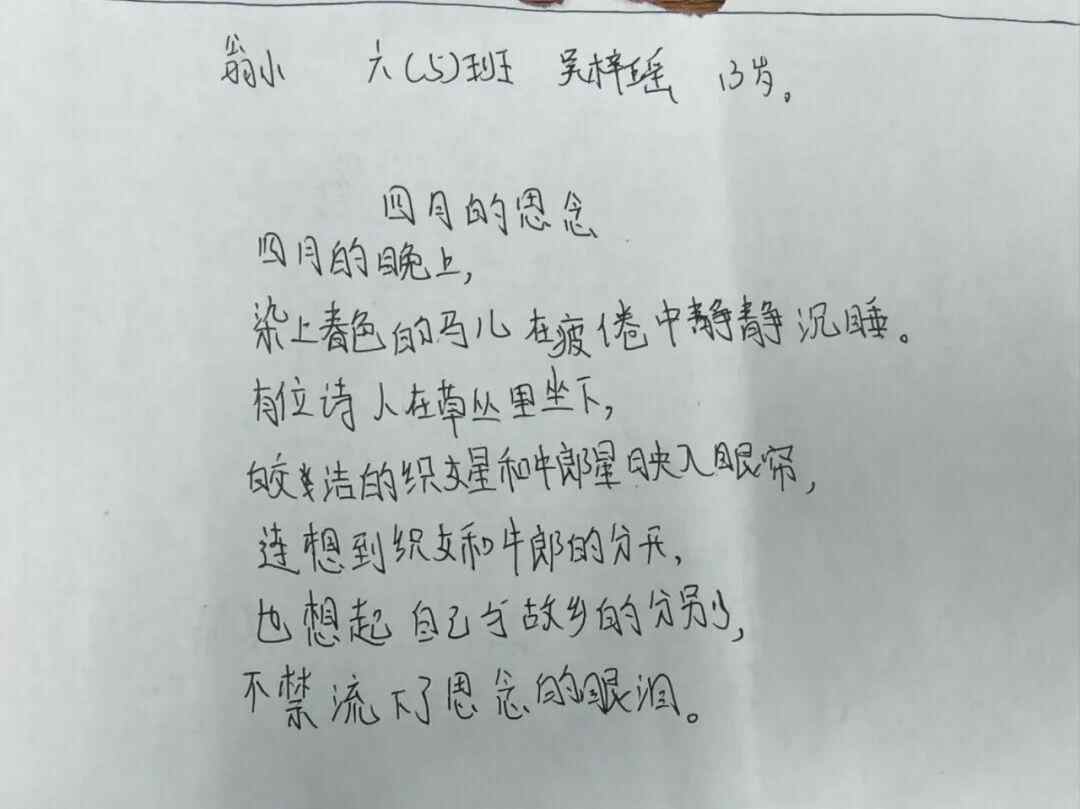 翁小 六(5)班 吴梓瑶 13岁。
四月的思念
四月的晚上,
染上春色的马儿在疲倦中静静沉睡。
有位诗人在草丛里坐下,
皎洁的织女星和牛郎星映入眼帘,
连想到织女和牛郎的分开,
也想起自己与故乡的分别,
不禁流下了思念的眼泪。